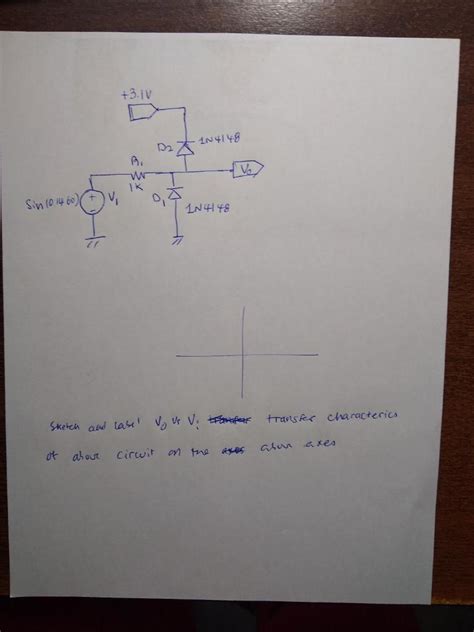 +3.1V
1N4148
D2
R1
1K
V0
Sin(0 1 400)
V1
D1
1N4148
Sketch and label V0 vs Vi transfer characterics
of above circuit on the above axes